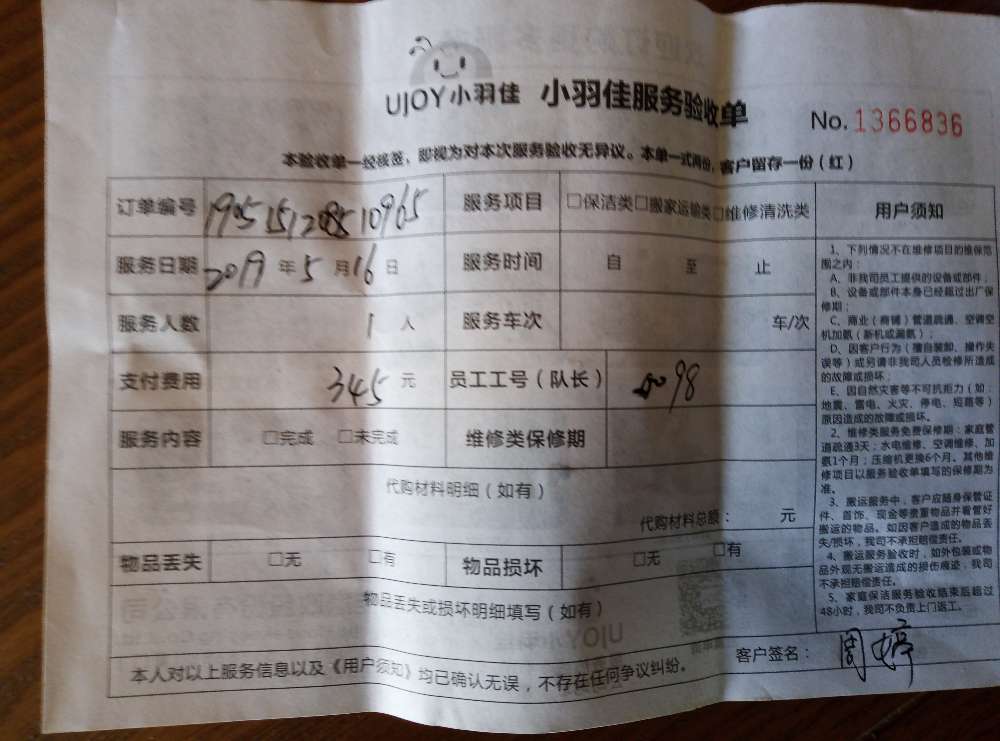 UJOY小羽佳 小羽佳服务验收单
No. 1366836
本验收单一经核签，即视为对本次服务验收无异议。本单一式两份，客户留存一份（红）
订单编号 服务项目 □保洁类□搬家运输类□维修清洗类
服务日期 2019 年 5 月 16 日 服务时间 自 至 止
服务人数 1 人 服务车次 车/次
支付费用 345 元 员工工号（队长） 98
服务内容 □完成 □未完成 维修类保修期
代购材料明细（如有）
代购材料总额： 元
物品丢失 □无 □有 物品损坏 □无 □有
物品丢失或损坏明细填写（如有）
本人对以上服务信息以及《用户须知》均已确认无误，不存在任何争议纠纷。
客户签名： 周婷
用户须知
1、下列情况不在维修项目的维保范
围之内：
A、非我司员工提供的设备或部件；
B、设备或部件本身已经超过出厂保
修期；
C、商业（商铺）管道疏通、空调空
机加氨（新机或漏氨）；
D、因客户行为（擅自装卸、操作失
误等）或另请非我司人员检修所造成
的故障或损坏；
E、因自然灾害等不可抗拒力（如：
地震、雷电、火灾、停电、短路等）
原因造成的故障或损坏。
2、维修类服务免费保修期：家庭管
道疏通3天；水电维修、空调维修、加
氨1个月；压缩机更换6个月。其他维
修项目以服务验收单填写的保修期为
准。
3、搬运服务中，客户应随身保管证
件、首饰、现金等贵重物品并看管好
搬运的物品。如因客户造成的物品丢
失/损坏，我司不承担赔偿责任。
4、搬运服务验收时，如外包装或物
品外观无搬运造成的损伤痕迹，我司
不承担赔偿责任。
5、家庭保洁服务验收结束后超过
48小时，我司不负责上门返工。